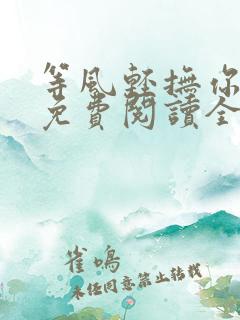 等風輕撫你
免費閱讀全
雀鳴
未經同意禁止轉載